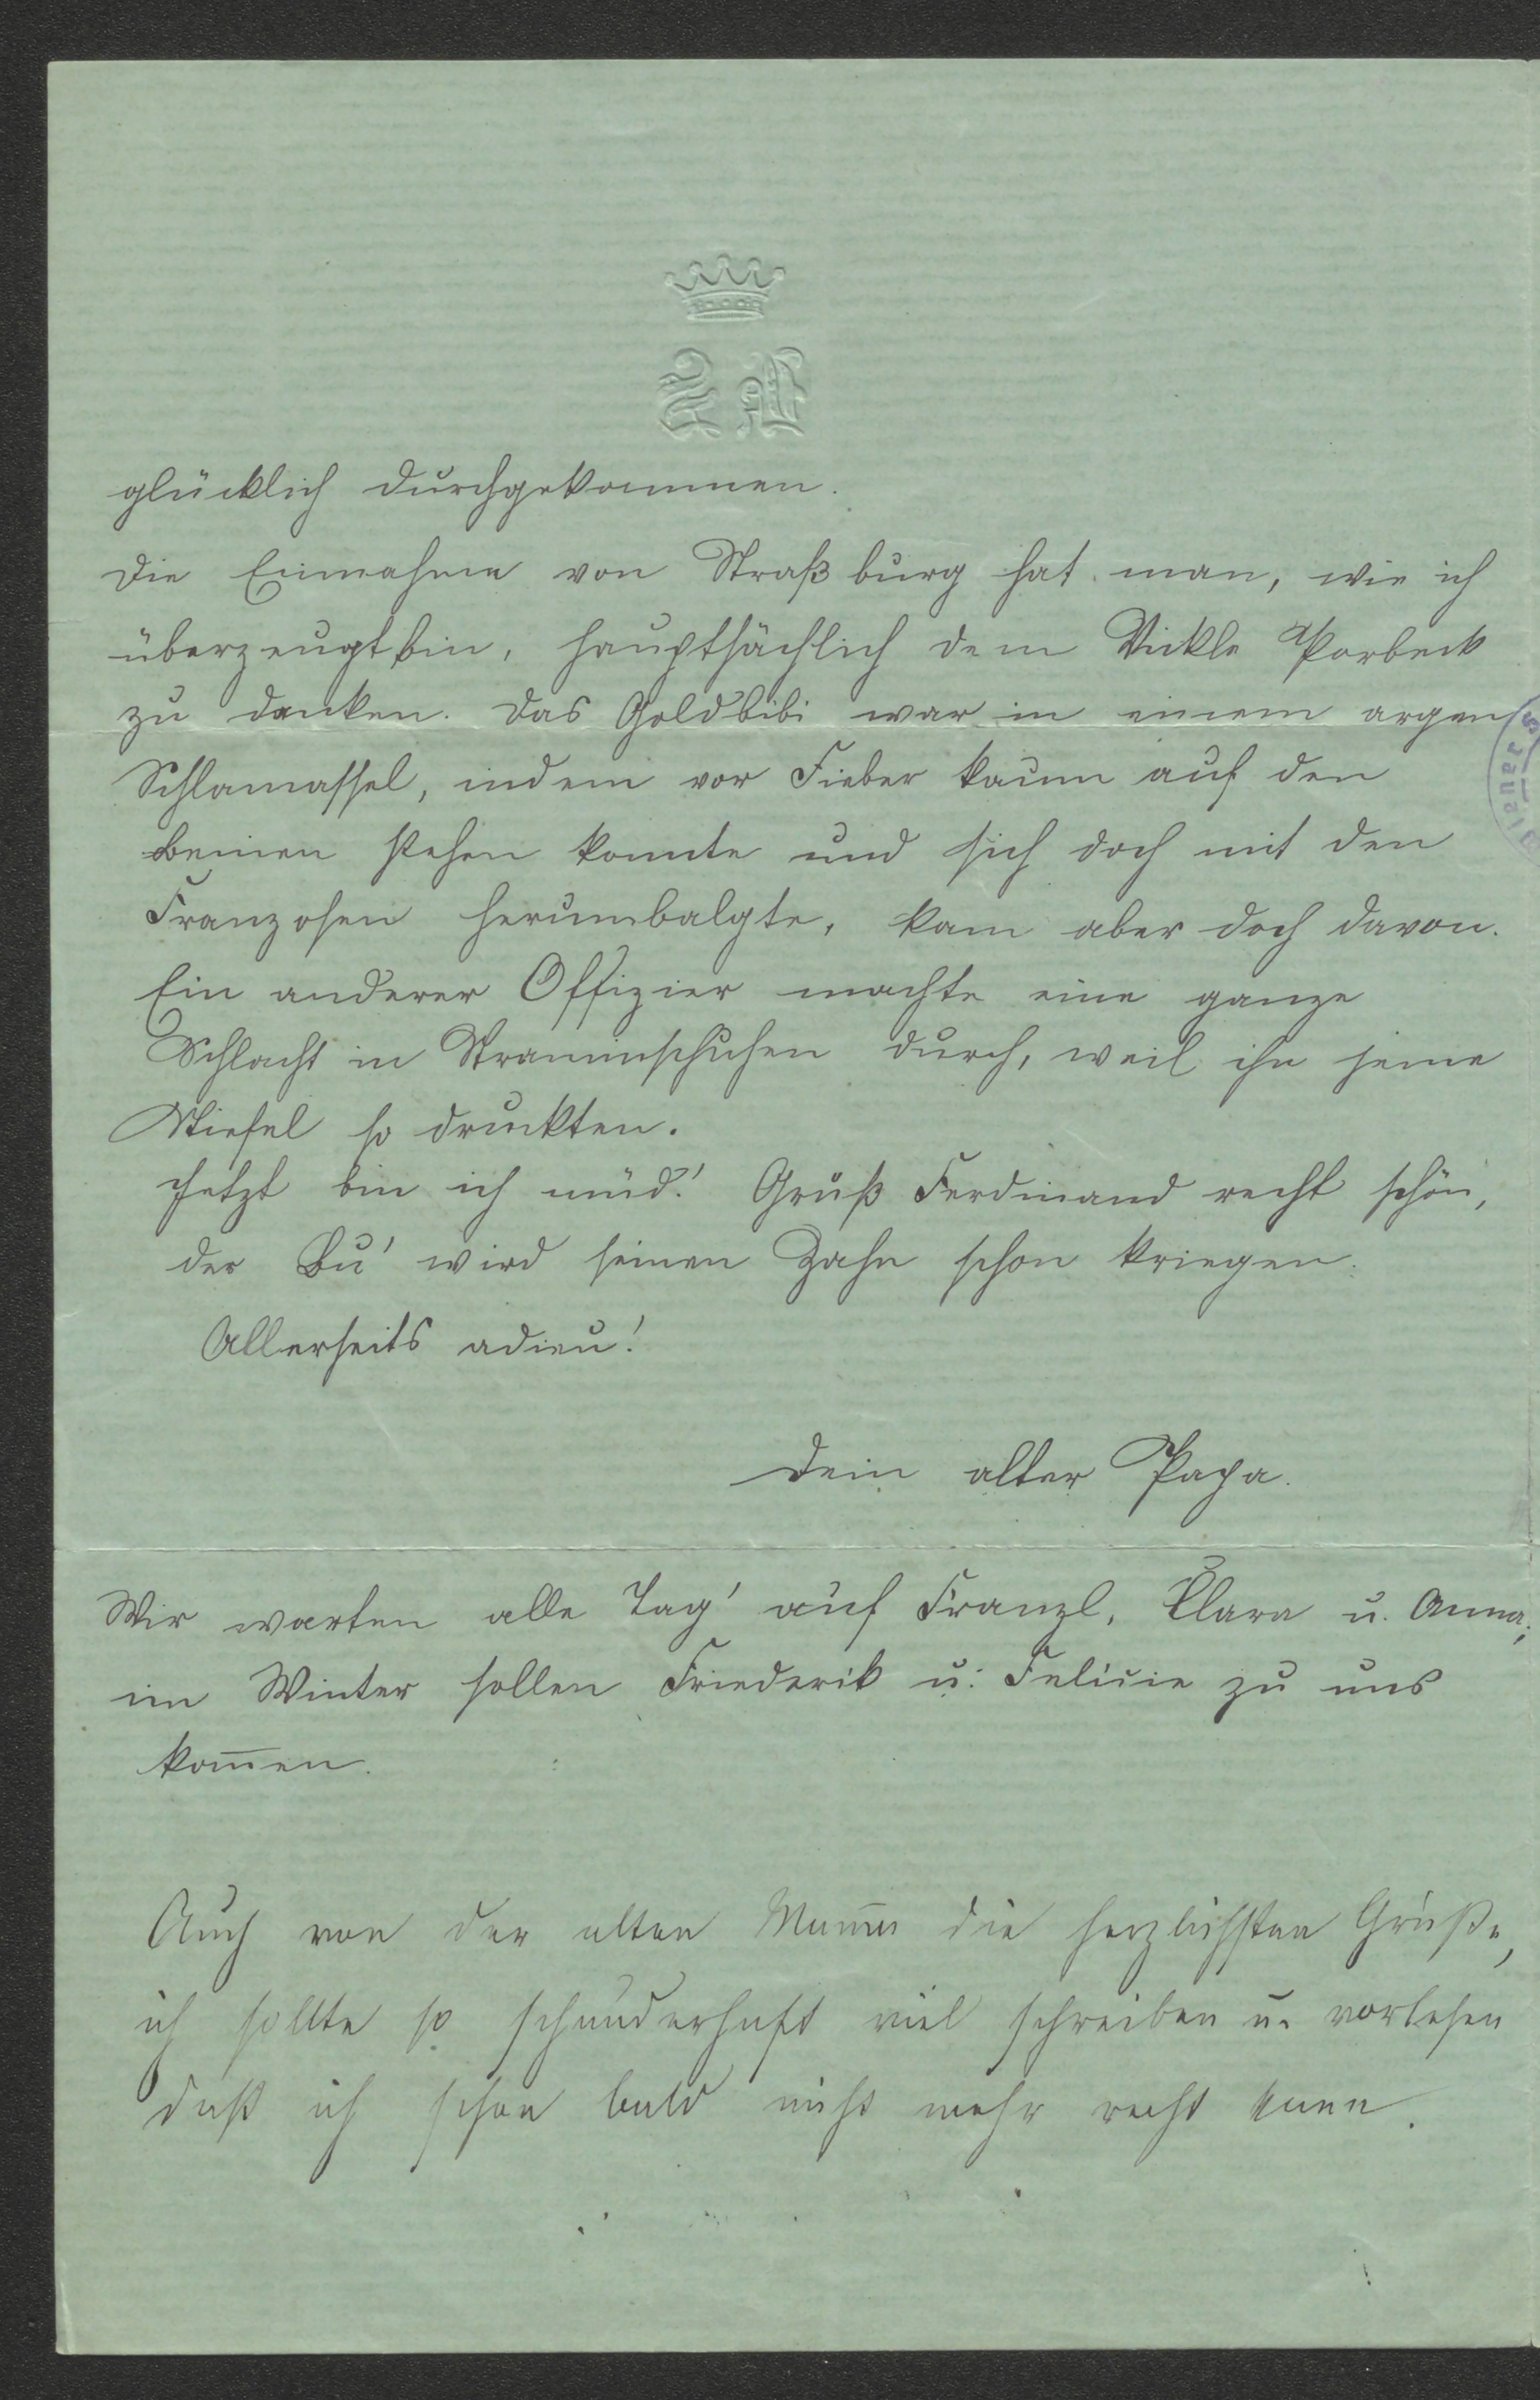 glücklich durchgekommen.
Die Einnahme von Straßburg hat man, wie ich
überzeugt bin, hauptsächlich dem Vickle Porbeck
zu danken. Das Goldbibi war in einem argen
Schlamassel, indem vor Fieber kaum auf den
Beinen stehen konnte und sich doch mit den
Franzosen herumbalgte, kam aber doch davon.
Ein anderer Offizier machte eine ganze
Schlacht in Straminschuhen durch, weil ihn seine
Stiefel so druckten.
Jetzt bin ich müd'! Gruß Ferdinand recht schön,
der Bu' wird seinen Zahn schon kriegen.
Allerseits adieu!
Dein alter Papa.
Wir warten alle Tag' auf Franzl, Clara u. Anna;
im Winter sollen Friederik u. Felicie zu uns
kom̄en.
Auch von der alten Mam̄a die herzlichsten Grüße,
ich sollte so schauderhaft viel schreiben u. vorlesen
daß ich schon bald nicht mehr recht kann.